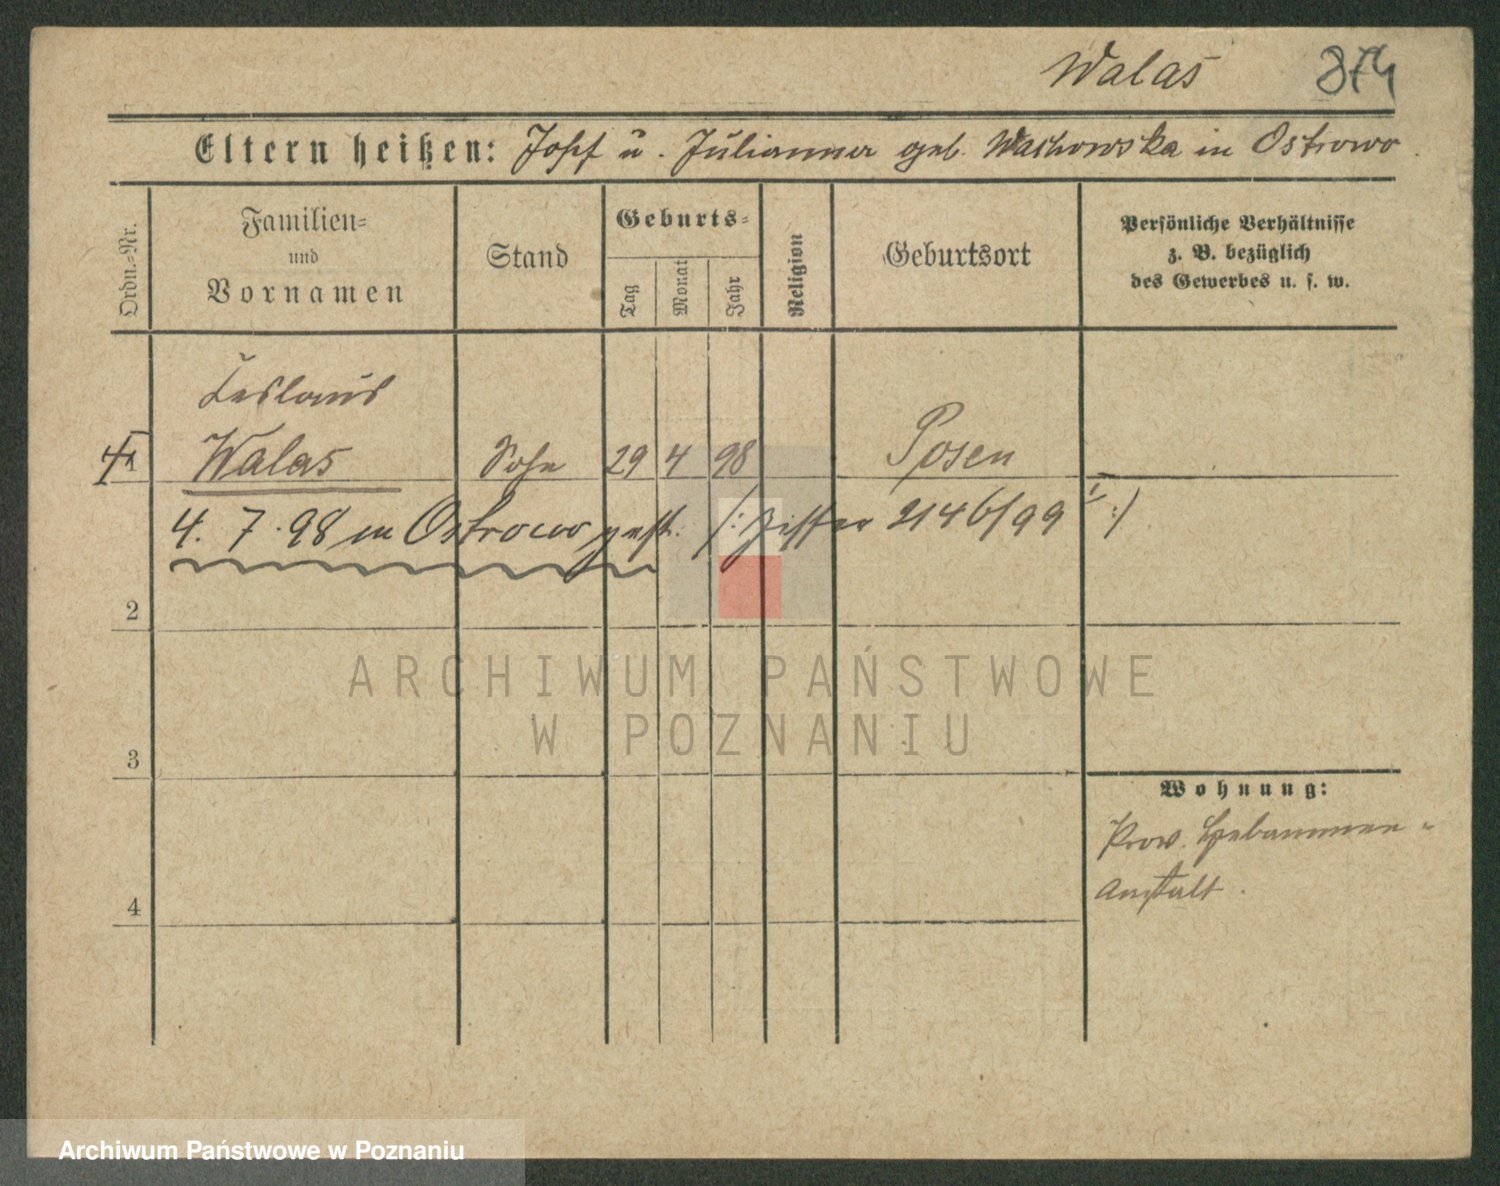 Walas 874
Eltern heißen: Josef u. Julianna geb. Wachowska in Ostrowo.
Ordn.=Nr.
Familien=
und
Vornamen
Stand
Geburts=
Tag
Monat
Jahr
Religion
Geburtsort
Persönliche Verhältnisse
z. B. bezüglich
des Gewerbes u. s. w.
Ceslaus
Walas Sohn 29 4 98 Posen
4. 7. 98 in Ostrowo gest. /: Ziffer 2146/99 I :/
2
3
4
Wohnung:
Prov. Hebammen-
Anstalt.
ARCHIWUM PAŃSTWOWE
W POZNANIU
Archiwum Państwowe w Poznaniu